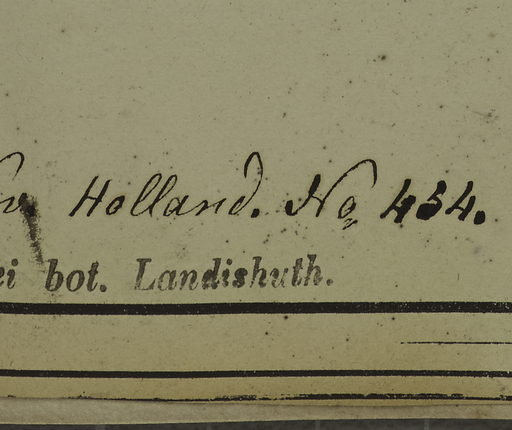 Holland. No 454.
ei bot. Landishuth.